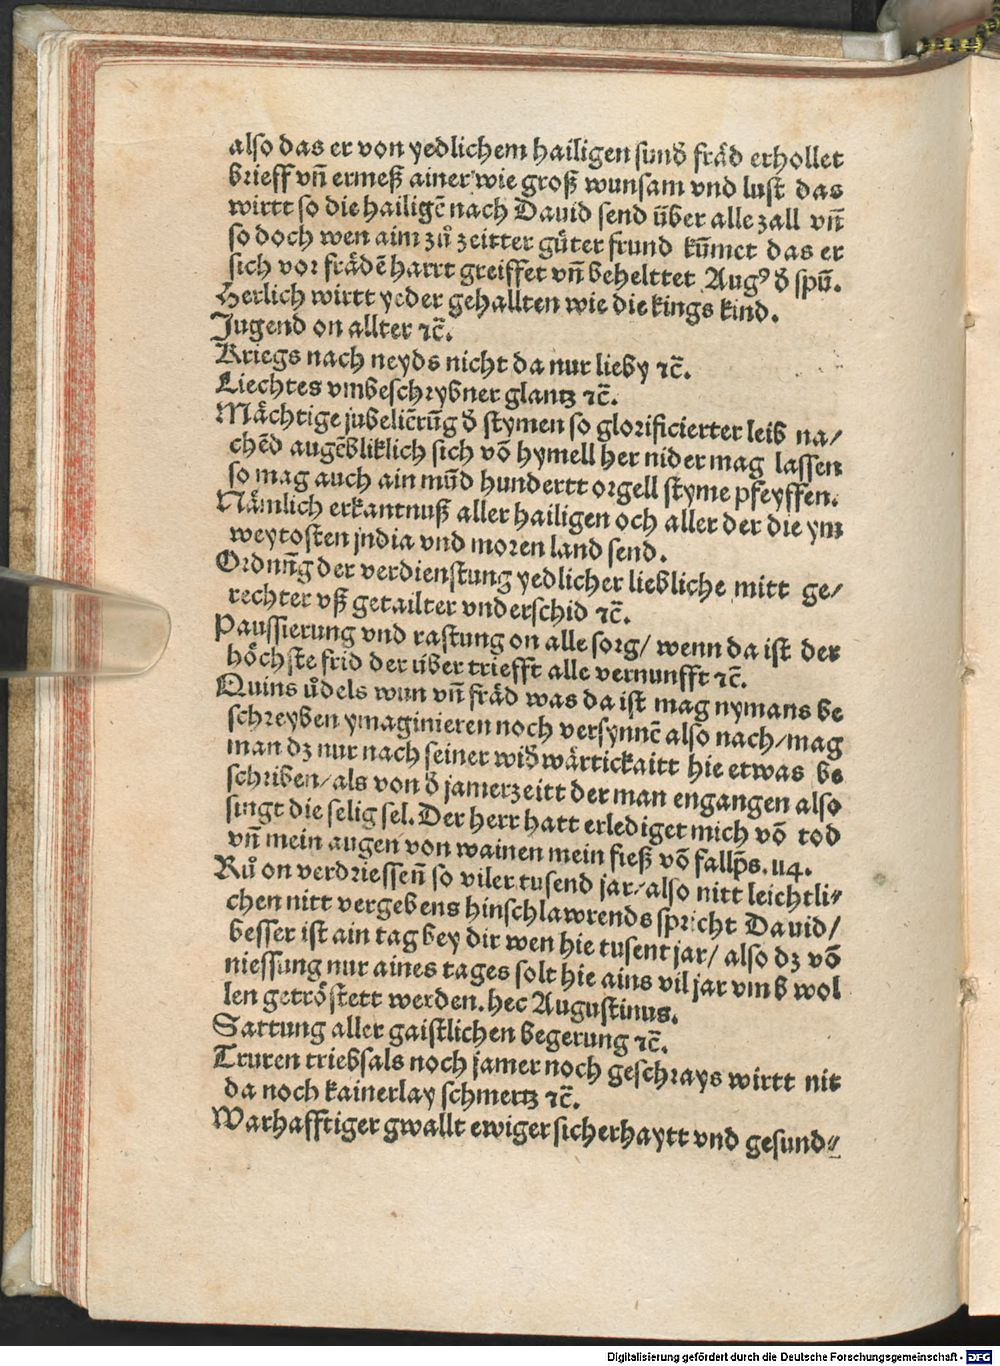 also das er von yedlichem hailigen sund̄ fräd erhollet
brieff vn̄ ermeß ainer wie groß wunsam vnd lust das
wirtt so die hailigē nach Dauid send über alle zall vn̄
so doch wen aim zů zeitter gůter frund kūmet das er
sich vor frädē harrt greiffet vn̄ behelttet Augꝰ đ spū.
Herlich wirtt yeder gehallten wie die kings kind.
Jugend on allter ⁊c̄.
Kriegs nach neyds nicht da nur lieby ⁊c̄.
Liechtes vmbeschrybner glantz ⁊c̄.
Mächtige jubeliērūg đ stymen so glorificierter leib na/
chēd augēbliklich sich vō hymell her nider mag lassen
so mag auch ain mūd hundertt orgell styme pfeyffen.
Nämlich erkantnuß aller hailigen och aller der die ym
weytosten jndia vnd moren land send.
Ordnūg der verdienstung yedlicher liebliche mitt ge/
rechter vß getailter vnderschid ⁊c̄.
Paussierung vnd rastung on alle sorg/ wenn da ist der
höchste frid der über triefft alle vernunfft ⁊c̄.
Quins ůdels wun vn̄ fräd was da ist mag nymans be
schreyben ymaginieren noch versynnē also nach/mag
man dz nur nach seiner wiđwärtickaitt hie etwas be
schriben/als von đ jamerzeitt der man engangen also
singt die selig sel. Der herr hatt erlediget mich vō tod
vn̄ mein augen von wainen mein fieß vō fall p̄s. 114.
Rů on verdriessen̄ so viler tusend jar/also nitt leichtli⸗
chen nitt vergebens hinschlawrends spricht Dauid/
besser ist ain tag bey dir wen hie tusent jar/ also dz vō
niessung nur aines tages solt hie ains vil jar vmb wol
len getröstett werden. hec Augustinus.
Sattung aller gaistlichen begerung ⁊c̄.
Truren triebsals noch jamer noch geschrays wirtt nit
da noch kainerlay schmertz ⁊c̄.
Warhafftiger gwallt ewiger sicherhaytt vnd gesund⸗
Digitalisierung gefördert durch die Deutsche Forschungsgemeinschaft - DFG